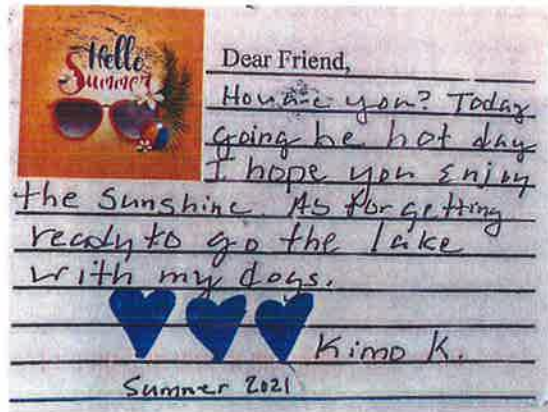 Hello
Summer
Dear Friend,
How are you? Today
going be hot day
I hope you Enjoy
the sunshine. As for getting
ready to go the lake
with my dogs.
Kimo K.
Summer 2021